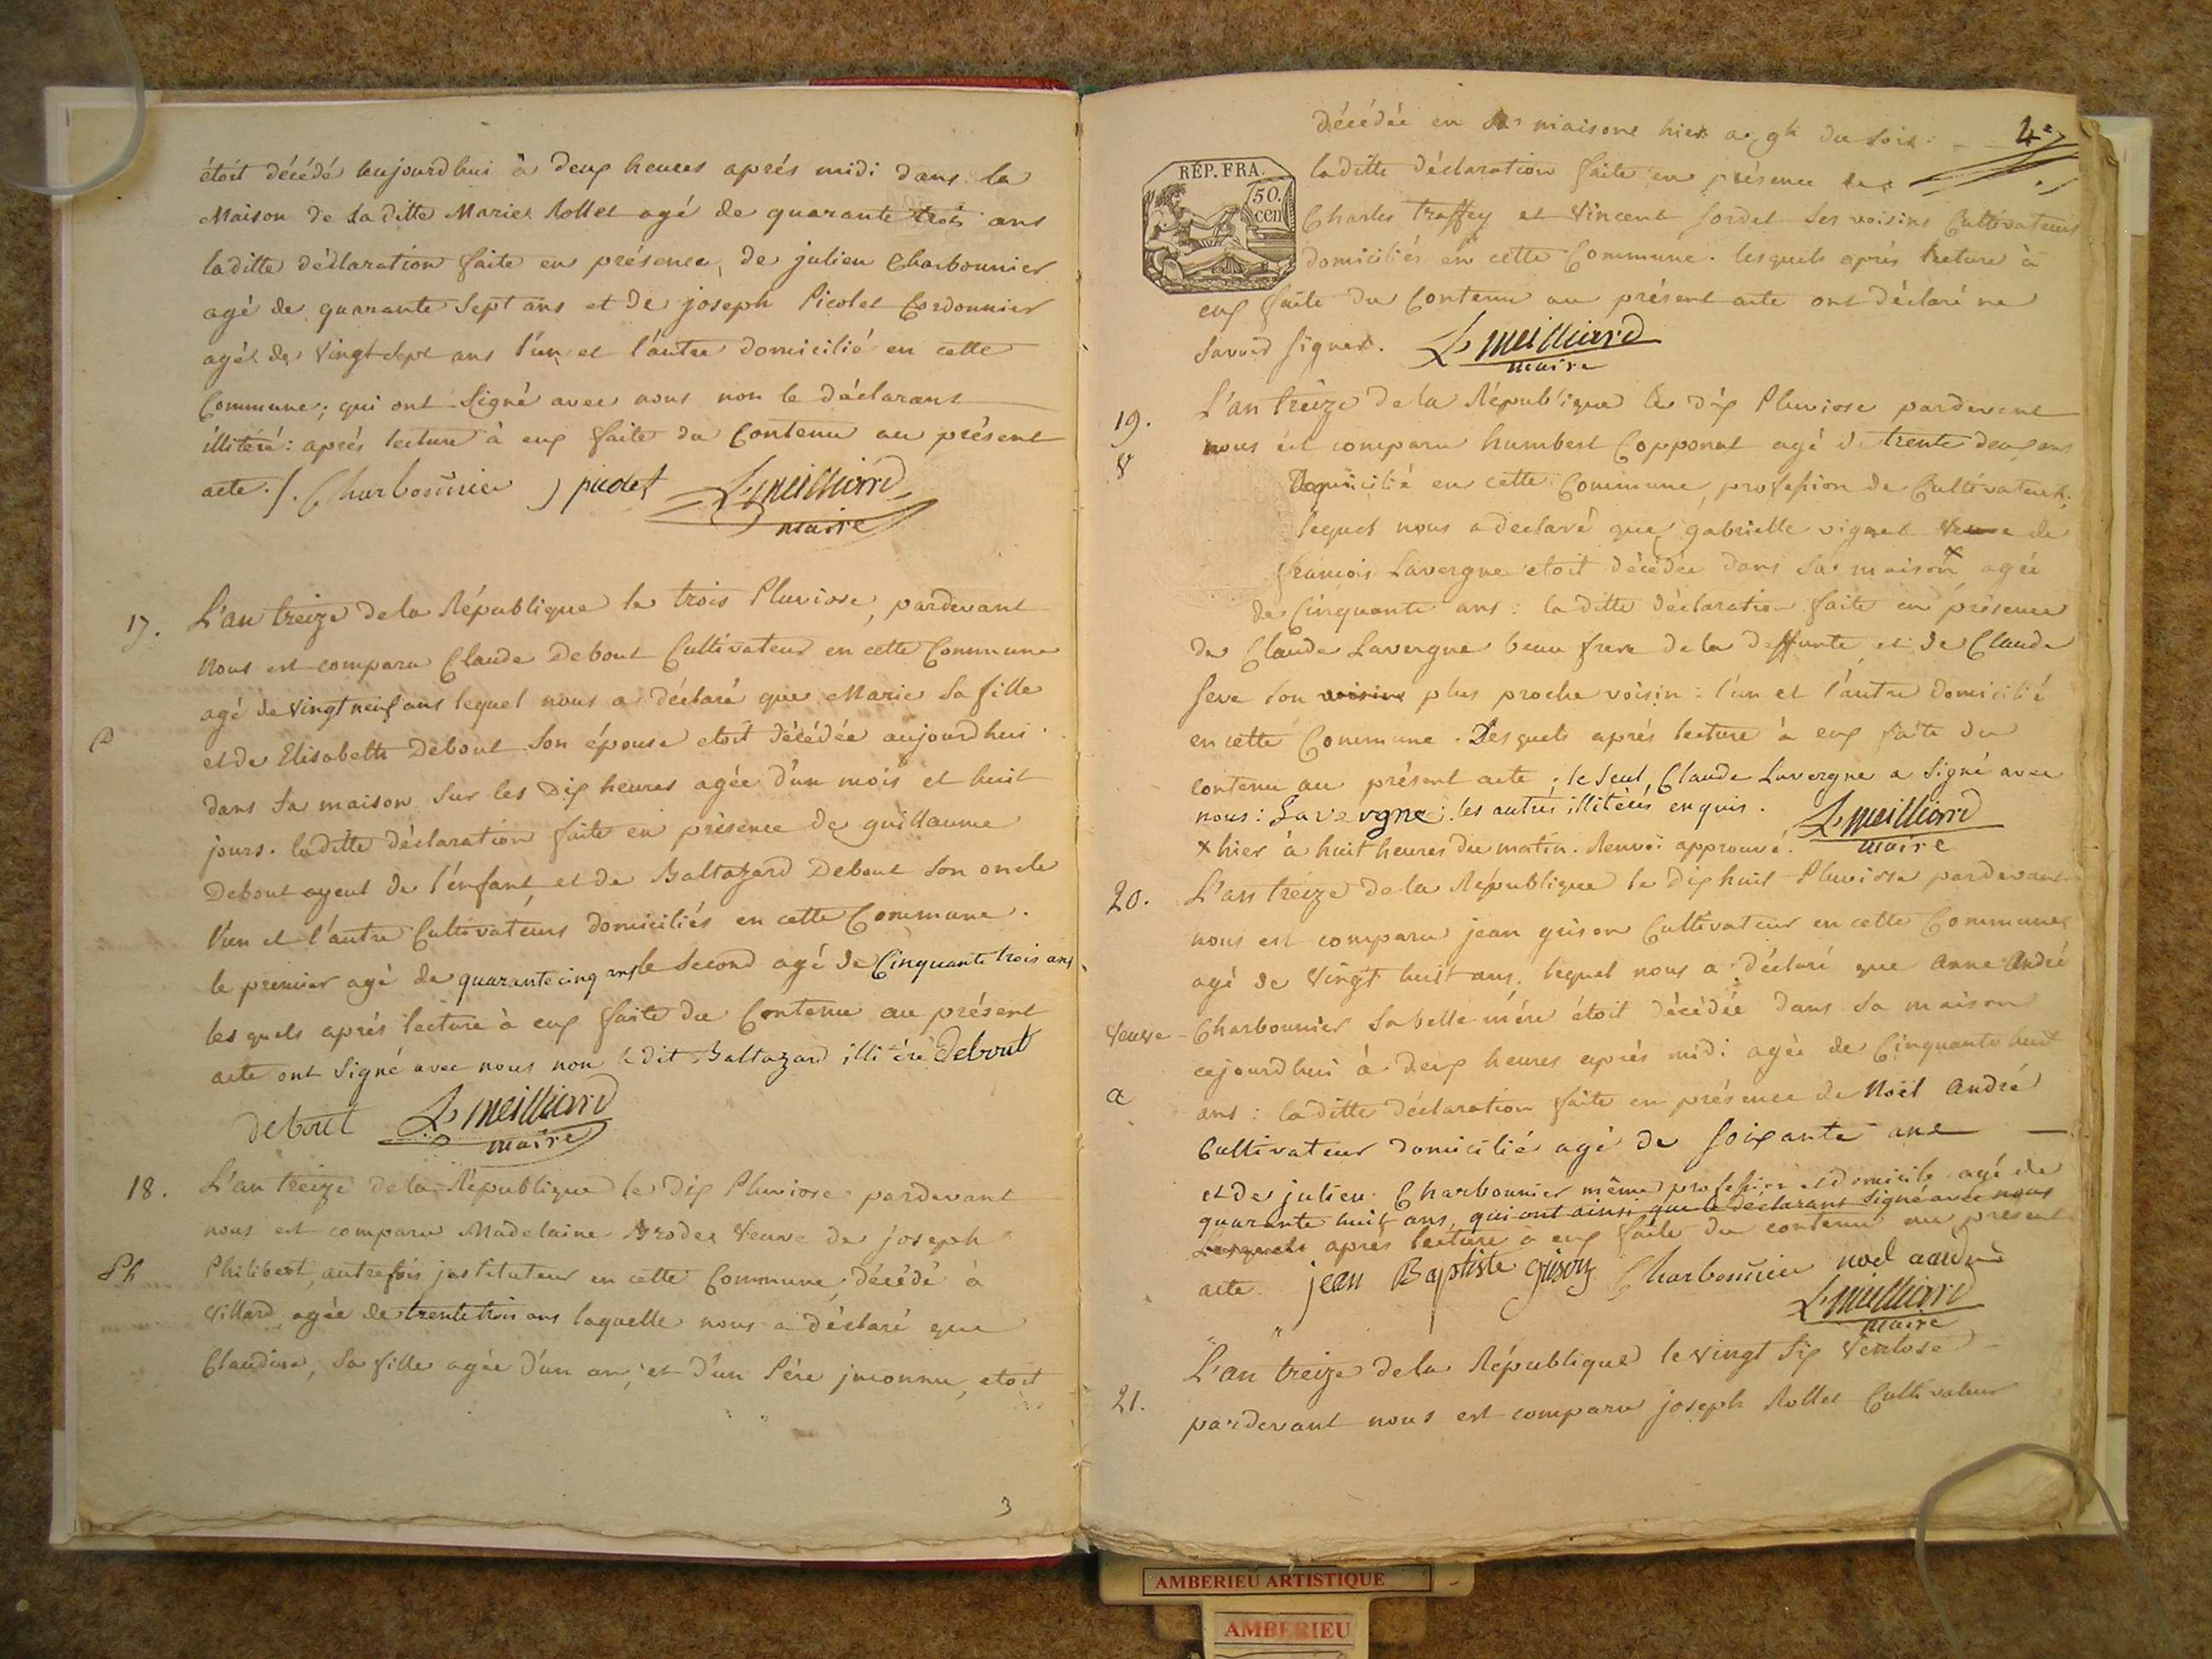 étoit décédé aujourdhui à deux heures après midi dans la
Maison de laditte Marie Rollet agé de quarante trois ans
laditte déclaration faite en présence, de julien Charbonnier
agé de quarante Sept ans et de joseph Picolet Cordonnier
agé de Vingt Sept ans l'un et l'autre domicilié en cette
Commune; qui ont Signé avec nous non le déclarant
illitéré: après lecture à eux faite du Contenu au présent
acte ./. Charbonnier J picolet Lmeilliard
maire
17. L'an treize de la République le trois Pluviose, pardevant
Nous est comparu Claude Debout Cultivateur en cette Commune
agé de Vingt neuf ans lequel nous a déclaré que Marie Sa fille
et de Elisabeth Debout Son épouse etoit décédée aujourdhui
D
dans Sa maison Sur les Dix heures agée d'un mois et huit
jours. laditte déclaration faite en présence de guillaume
Debout ayeul de l'enfant, et de Baltazard Debout Son oncle
l'un et l'autre Cultivateurs domiciliés en cette Commune.
le premier agé de quarante cinq ans le Second agé de Cinquante trois ans
lesquels après lecture à eux faite du Contenu au présent
acte ont Signé avec nous non ledit Baltazard illitéré Debout
debout Lmeilliard
maire
18. L'an treize de la République le dix Pluviose pardevant
nous est comparu Madelaine Brodet Veuve de joseph
Ph Philibert, autrefois jnstituteur en cette Commune, décédé à
Villard, agée de trente trois ans laquelle nous a déclaré que
Claudine, Sa fille agée d'un an, et d'un Père jnconnu, etoit
3
décédée en Sa maison hier a 9h du Soir.
4e
RÉP. FRA.
50.
cen
laditte déclaration faite en présence de
Charles Traffey et Vincent Sordet Ses voisins Cultivateurs
domiciliés en cette Commune. lesquels après lecture à
eux faite du Contenu au présent acte ont déclaré ne
Savoir Signer. Lmeilliard
maire
19. L'an treize de la République le dix Pluviose pardevant
nous est comparu humbert Copponat agé de trente deux ans
V
Domicilié en cette Commune, profession de Cultivateur,
lequel nous a declaré que gabrielle vignet Veuve de
francois Lavergne etoit décédée dans Sa maison x agée
de Cinquante ans: laditte déclaration faite en présence
de Claude Lavergne beau frere de la deffunte et de Claude
Seve Son voisin plus proche voisin: l'un et l'autre domicilié
en cette Commune. Desquels après lecture à eux faite du
contenu au présent acte; le Seul Claude Lavergne a Signé avec
nous: Lavergne; les autres illitérés enquis. Lmeilliard
x hier à huit heures du matin. Renvoi approuvé. maire
20. L'an treize de la République le dix huit Pluviose pardevant
nous est comparu jean grison Cultivateur en cette Commune
agé de Vingt huit ans. lequel nous a déclaré que Anne André
Veuve - Charbonnier Sa belle mère étoit décédée dans Sa maison
cejourdhui à deux heures après midi agée de Cinquante huit
a
ans: laditte déclaration faite en présence de Noël André
Cultivateur domicilié agé de Soixante ans
et de julien Charbonnier même profession et domicile agé de
quarante huit ans, qui ont ainsi que le déclarant Signé avec nous
Lesquels après lecture à eux faite du contenu au present
acte. jean Baptiste grison Charbonnier noel andré
Lmeilliard
maire
L'an treize de la République le vingt Six Ventose
21.
pardevant nous est comparu joseph Rollet Cultivateur
AMBERIEU ARTISTIQUE
AMBERIEU